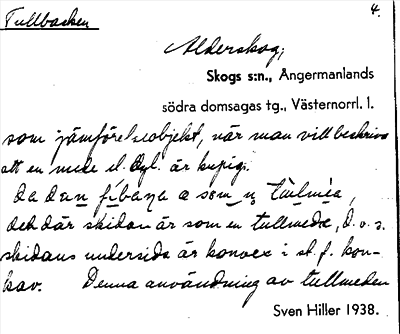 Tullbacken
4.
Alderskog,
Skogs s:n., Ångermanlands
södra domsagas tg., Västernorrl. l.
som jämförelseobjekt, när man vill beskriva
att en mede el. dyl. är kupig.
da dan a som
det där skidan är som en tullmede, d. v. s.
skidans undersida är konvex i st. f. kon-
kav. Denna användning av tullmeden
Sven Hiller 1938.